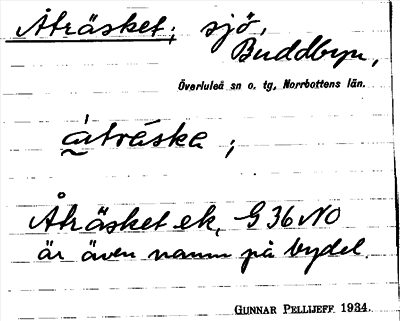 Åträsket; sjö,
Buddbyn,
Överluleå sn o. tg, Norrbottens län.
åtrá̈ska ;
Åträsket ek, G 36 NO
är även namn på bydel.
GUNNAR PELLIJEFF 1934.